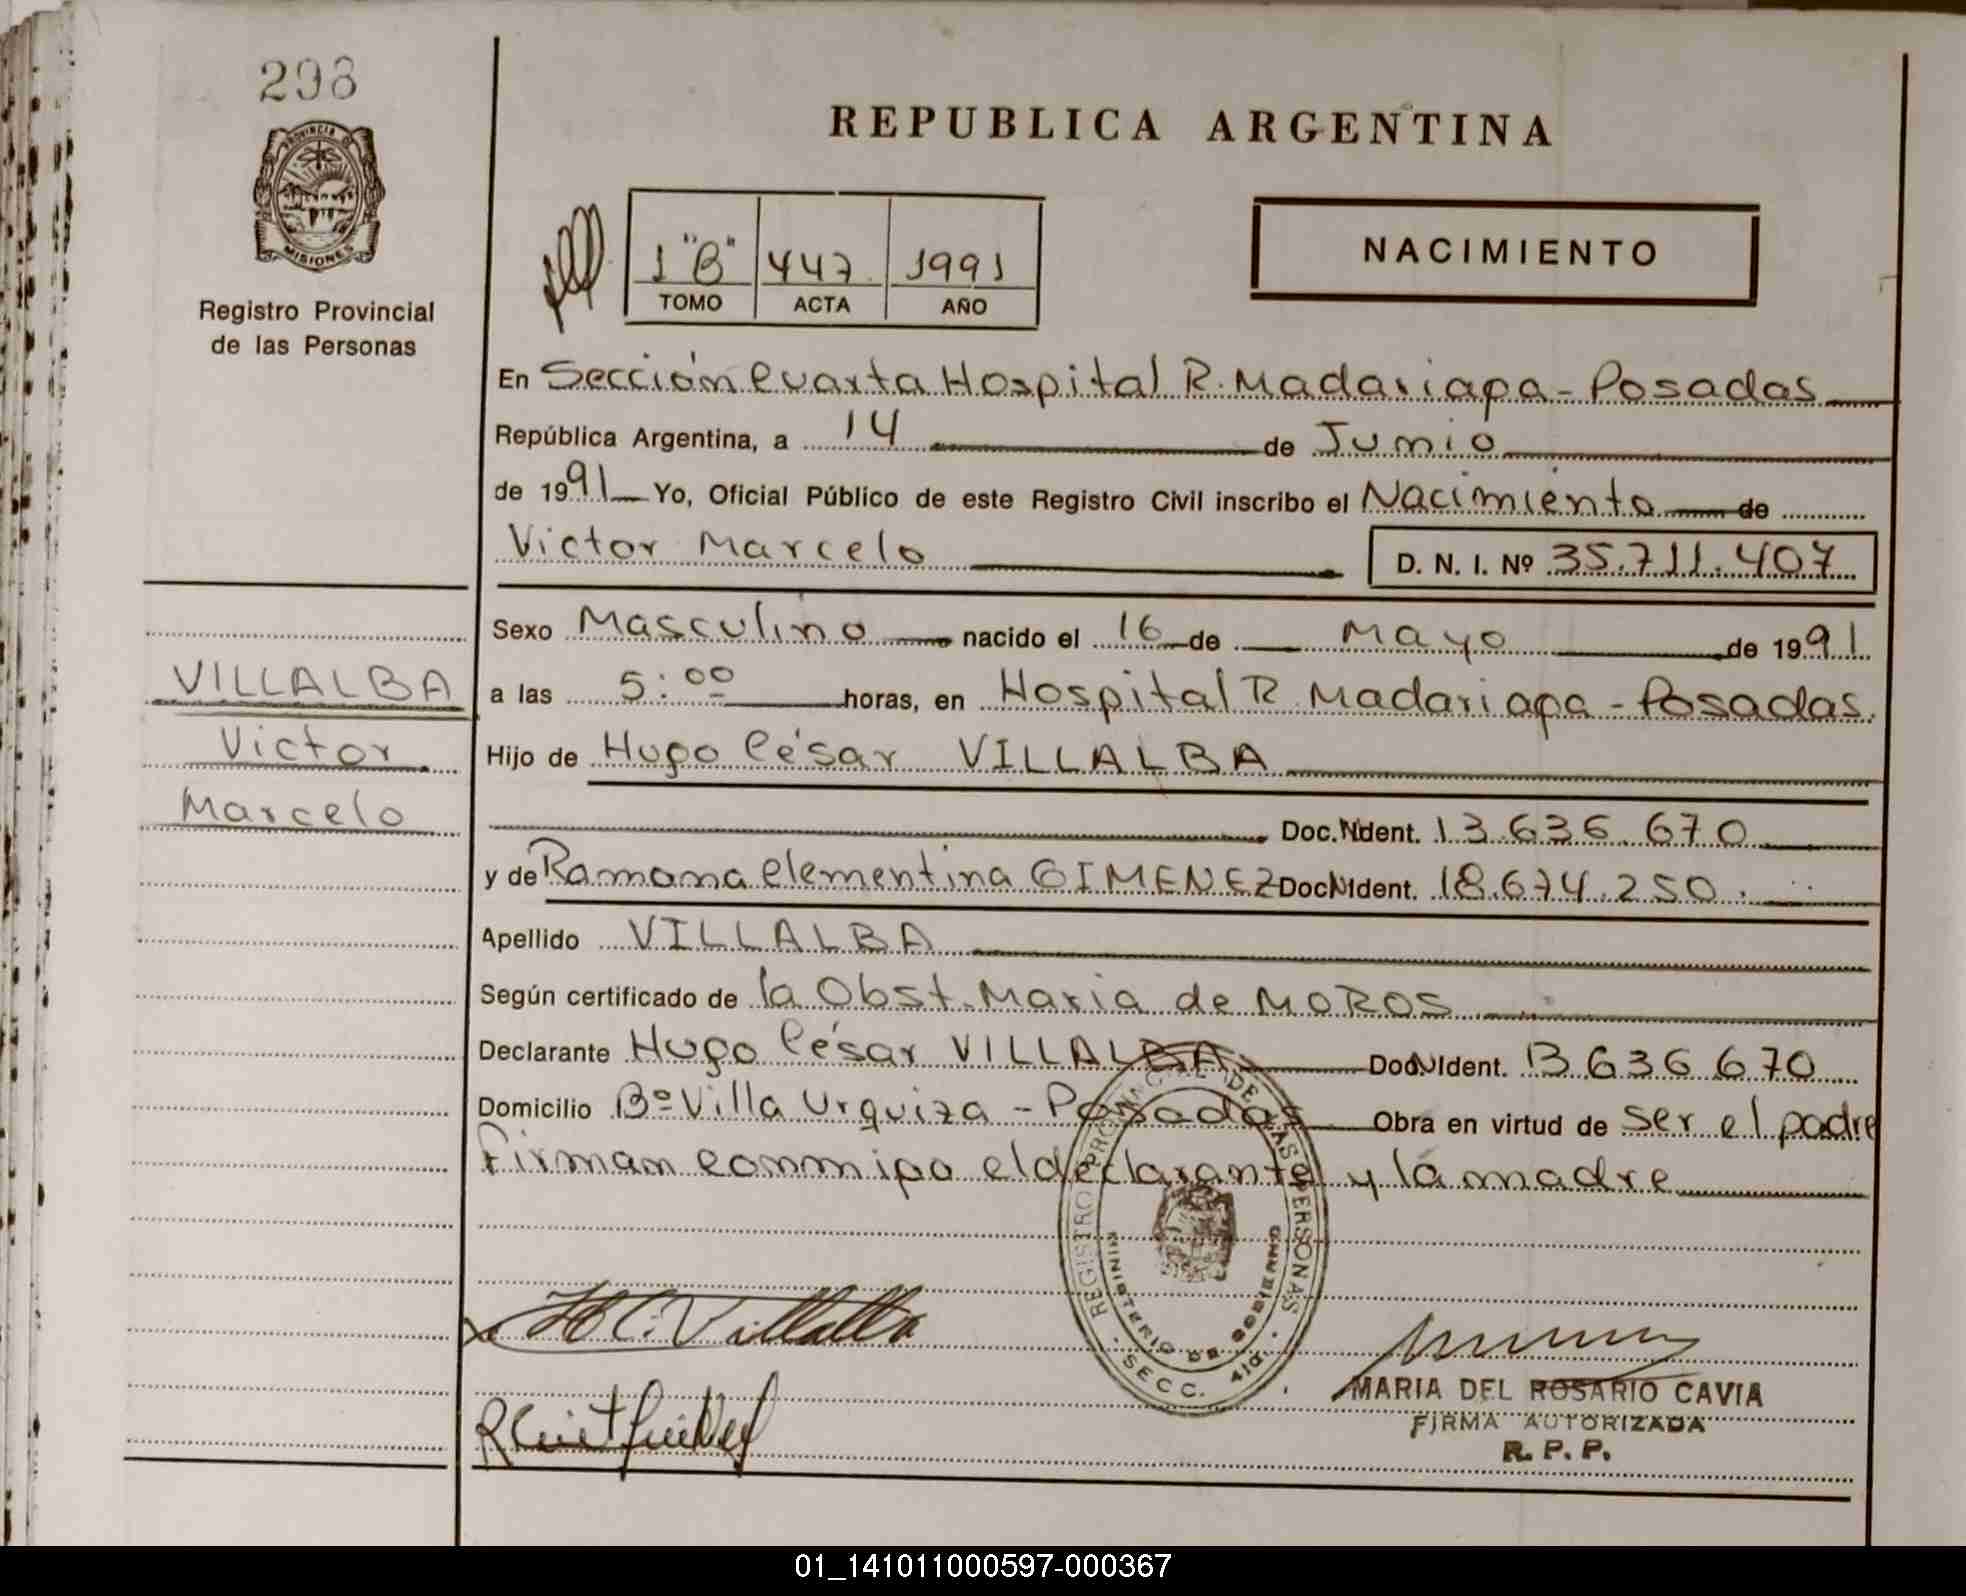 298
PROVINCIA D
MISIONES
Registro Provincial
de las Personas
REPUBLICA ARGENTINA
1 "B" 447 1991
TOMO ACTA AÑO
NACIMIENTO
En Sección Cuarta Hospital R. Madariaga - Posadas
República Argentina, a 14 de Junio
de 1991 Yo, Oficial Público de este Registro Civil inscribo el Nacimiento de
Victor Marcelo D. N. I. Nº 35.711.407
Sexo Masculino nacido el 16 de Mayo de 1991
VILLALBA
a las 5:00 horas, en Hospital R Madariaga - Posadas.
Victor
Hijo de Hugo César VILLALBA
Marcelo
Doc. Ident. 13.636.670
y de Ramona Clementina GIMENEZ Doc Ident. 18.674.250.
Apellido VILLALBA
Según certificado de la Obst. Maria de MOROS
Declarante Hugo César VILLALBA Doc Ident. 13 636 670
Domicilio Bº Villa Urquiza - Posadas Obra en virtud de ser el padre
Firman conmigo el declarante y la madre
REGISTRO PROVINCIAL DE LAS PERSONAS
MINISTERIO DE GOBIERNO
SECC. 4ta.
H C. Villalba
MARIA DEL ROSARIO CAVIA
FIRMA AUTORIZADA
R. P. P.
01_141011000597-000367